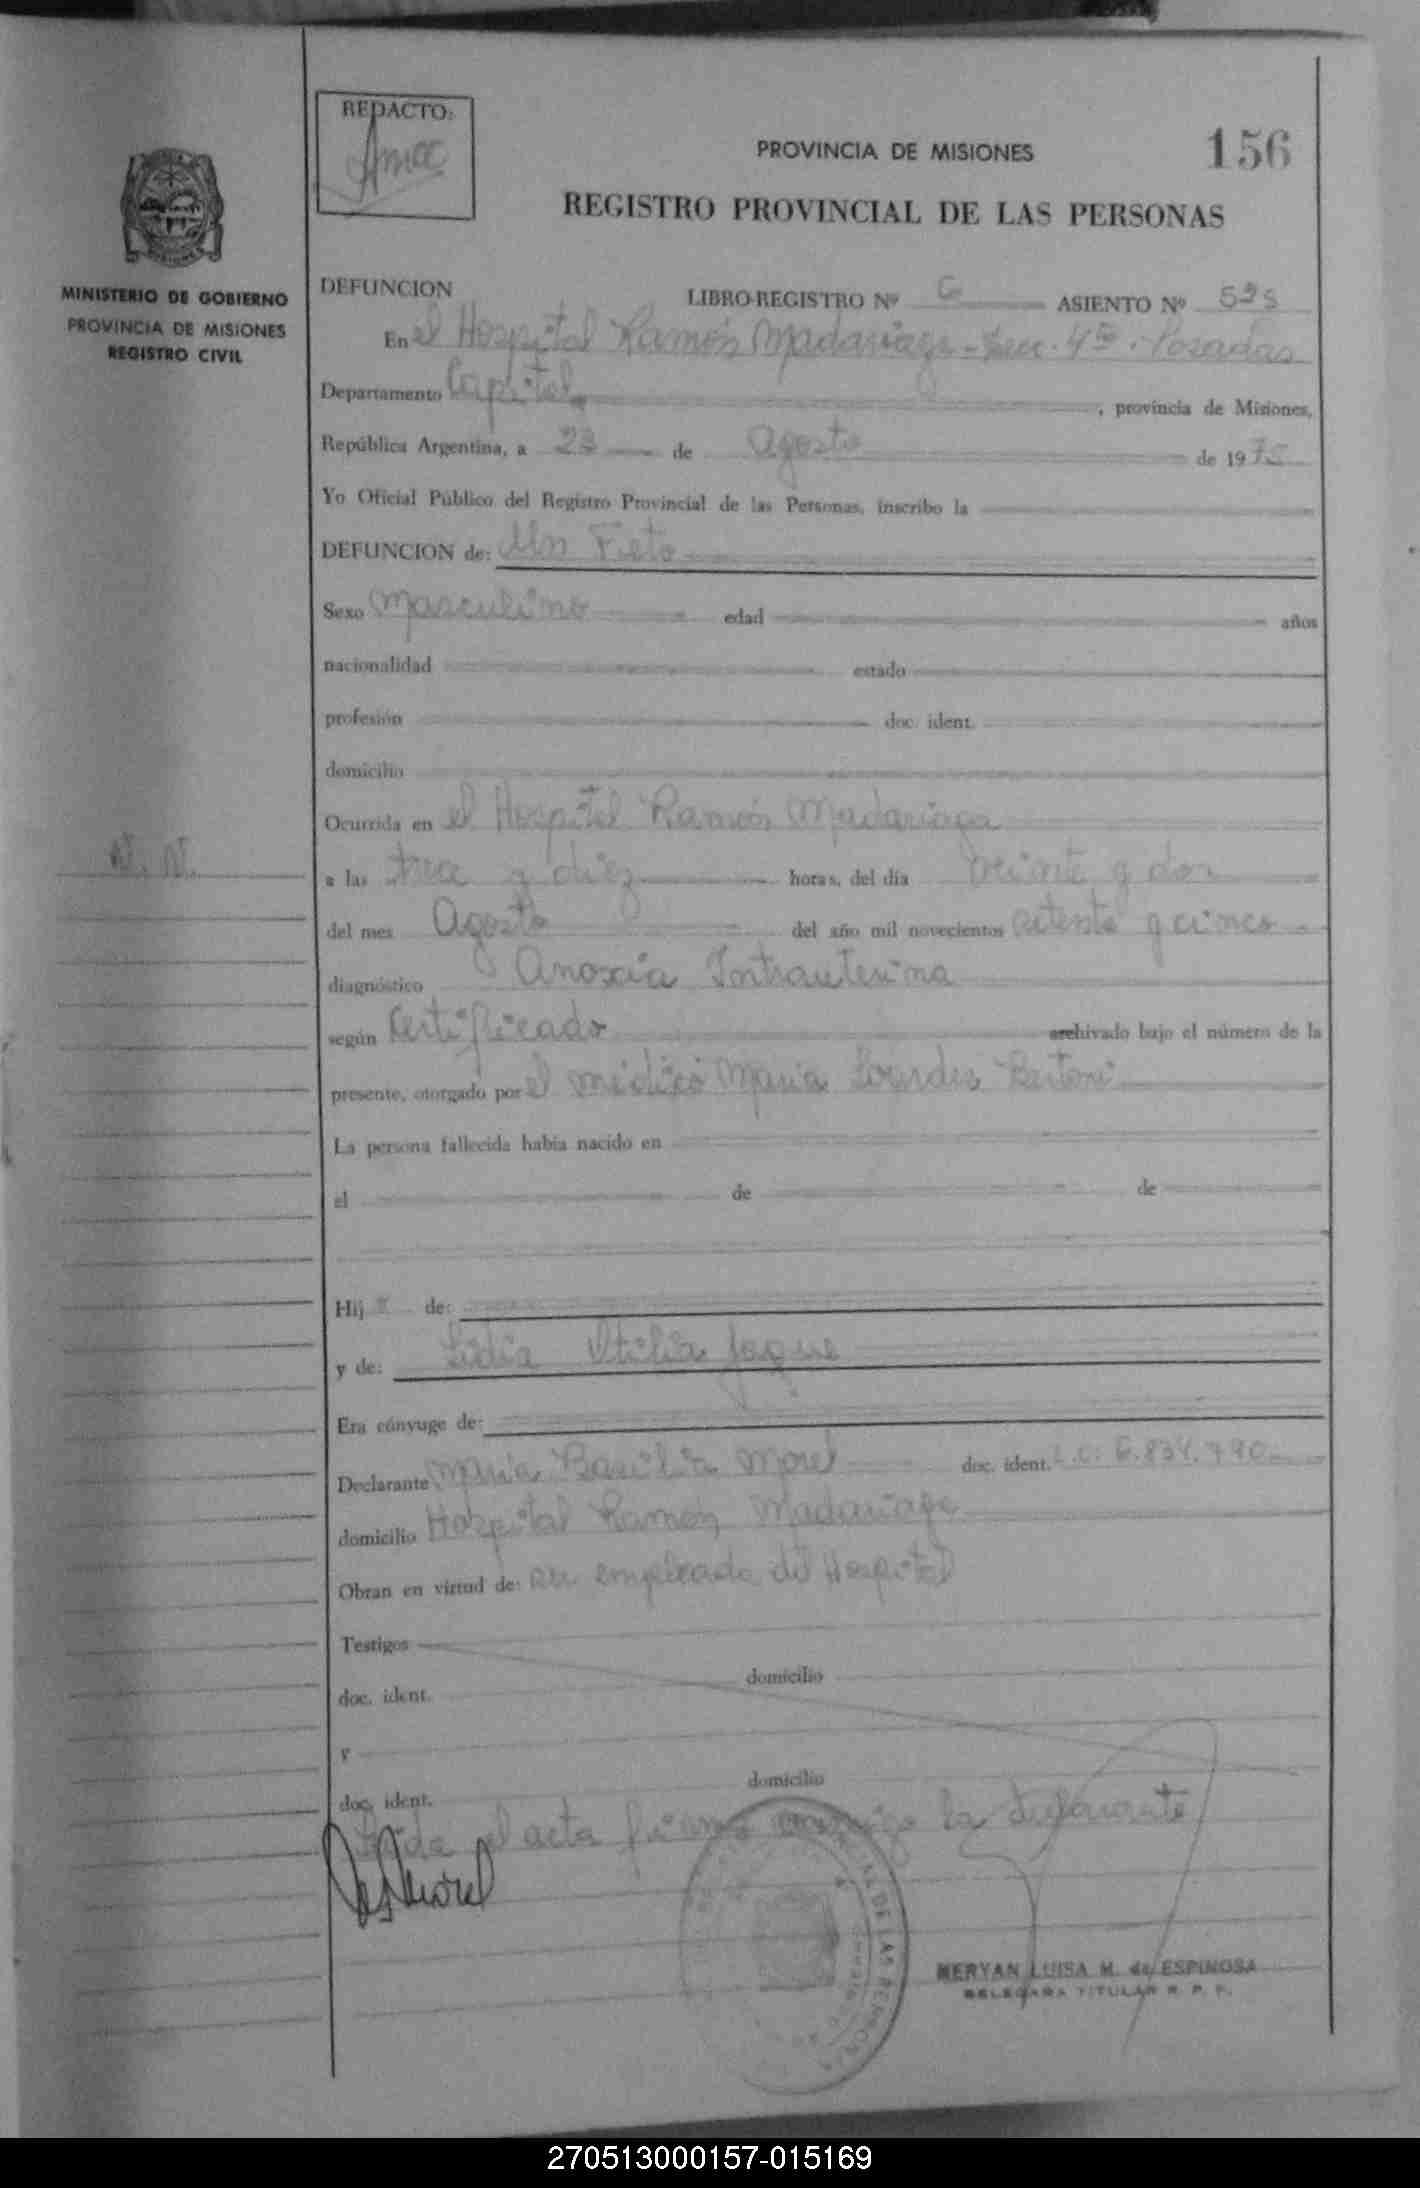 REDACTO:
156
PROVINCIA DE MISIONES
REGISTRO PROVINCIAL DE LAS PERSONAS
MINISTERIO DE GOBIERNO
PROVINCIA DE MISIONES
REGISTRO CIVIL
DEFUNCION LIBRO-REGISTRO Nº ASIENTO Nº
En el Hospital Ramón Madariaga - Secc. 4ta - Posadas
Departamento Capital, provincia de Misiones,
República Argentina, a 23 de Agosto de 1975
Yo Oficial Público del Registro Provincial de las Personas, inscribo la
DEFUNCION de: Un Feto
Sexo Masculino edad años
nacionalidad estado
profesión doc. ident.
domicilio
Ocurrida en el Hospital Ramón Madariaga
N. N.
a las trece y diez horas, del día veinte y dos
del mes Agosto del año mil novecientos setenta y cinco
diagnóstico Anoxia Intrauterina
según Certificado archivado bajo el número de la
presente, otorgado por el médico Maria Lourdes Bertoni
La persona fallecida había nacido en
el de de
Hij de:
y de: Lidia Otilia Jaque
Era cónyuge de:
Declarante Maria Basilia Morel doc. ident. L.C. 6.834.790
domicilio Hospital Ramón Madariaga
Obran en virtud de: ser empleada del Hospital
Testigos
doc. ident. domicilio
y
doc. ident. domicilio
Leida el acta firma conmigo la declarante
Morel
AL DE LAS PERSONAS
MERYAN LUISA M. de ESPINOSA
DELEGADA TITULAR R. P. P.
270513000157-015169